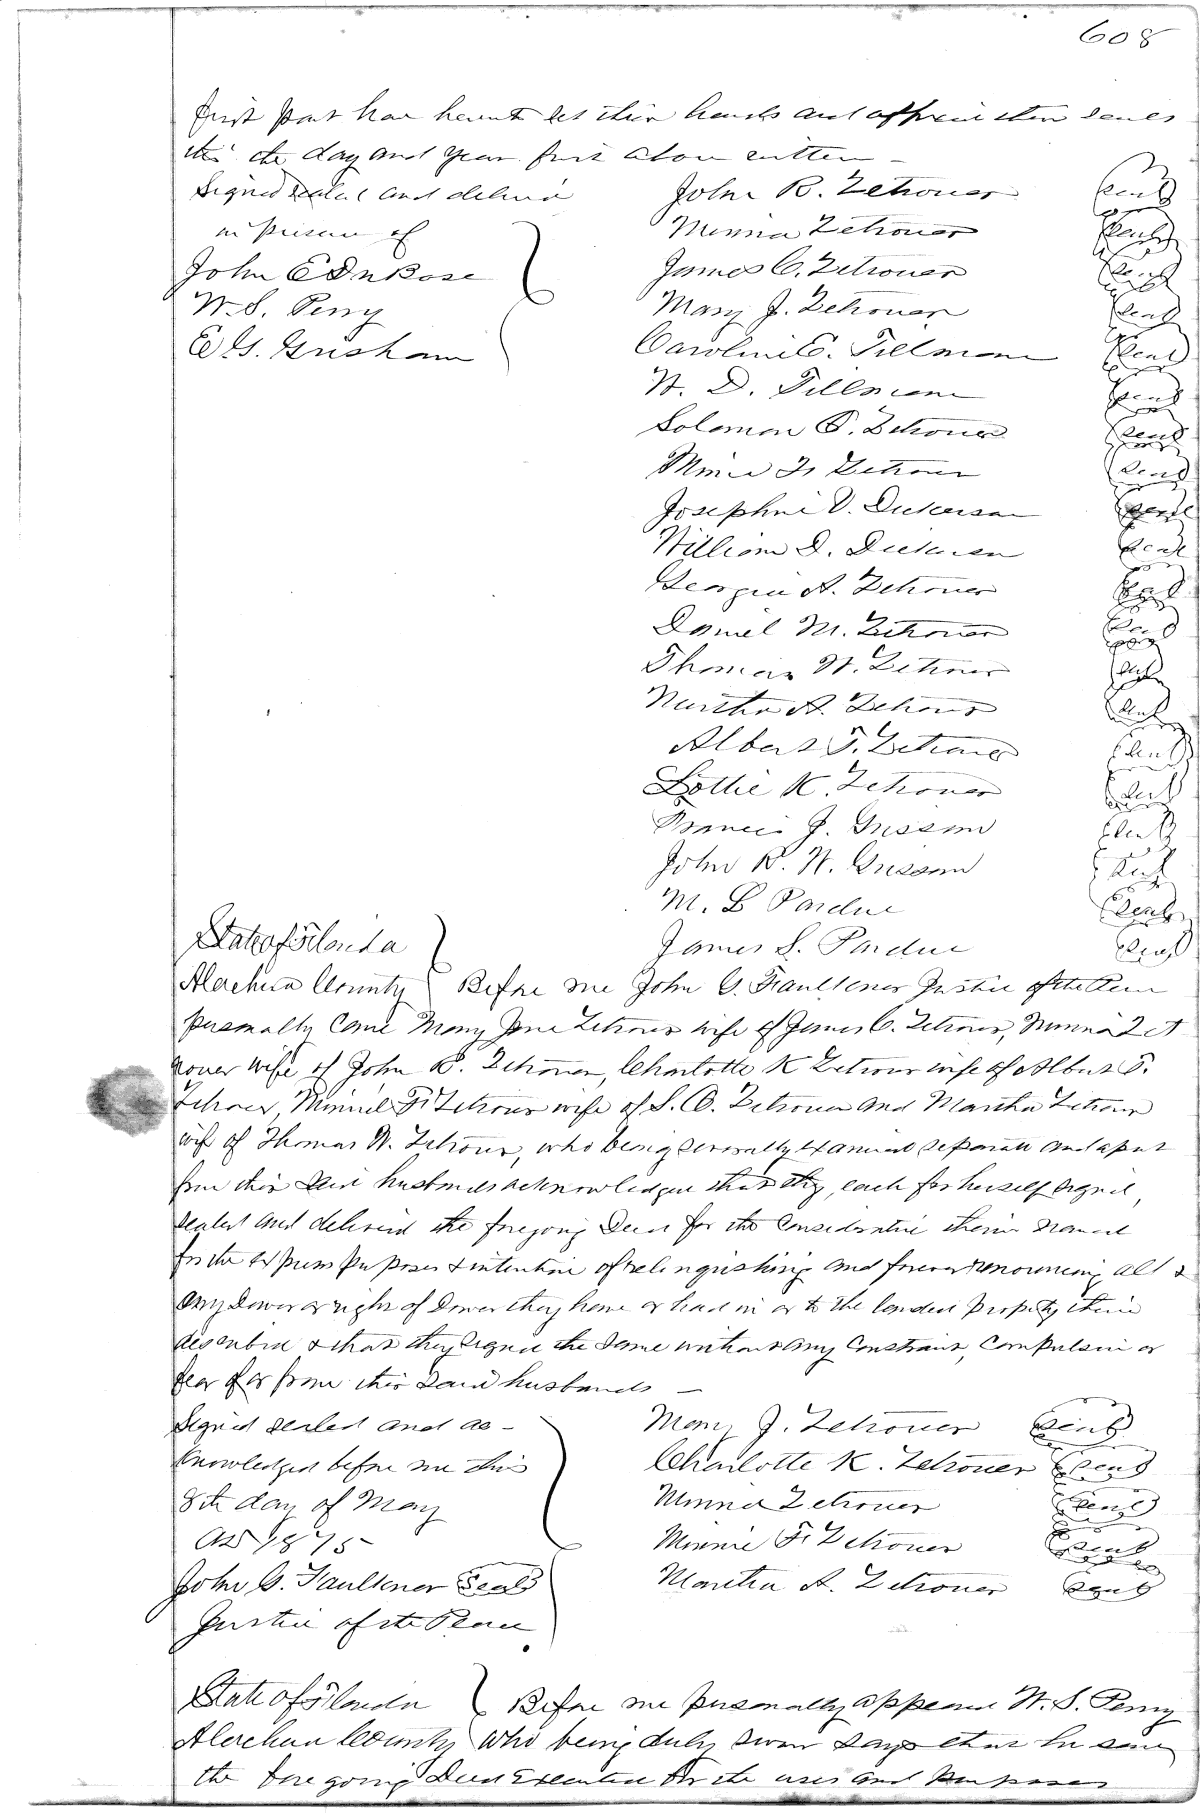 608
first part have hereunto set their hands and affixed their seals
this the day and year first above written —
Signed sealed and deliverd John R. Zetrouer (seal)
in presence of Minna Zetrouer (seal)
John E DuBose James C. Zetrouer (seal)
W. S. Perry Mary J. Zetrouer (seal)
E. G. Grisham Caroline E. Tillman (seal)
W. D. Tillman (seal)
Solomon O. Zetrouer (seal)
Minnie F. Zetrouer (seal)
Josephine V. Dickerson (seal)
William D. Dickerson (seal)
Georgia A. Zetrouer (seal)
Daniel M. Zetrouer (seal)
Thomas W. Zetrouer (seal)
Martha A. Zetrouer (seal)
Albert F. Zetrouer (seal)
Lottie K. Zetrouer (seal)
Francis J. Grissom (seal)
John R. W. Grissom (seal)
M. L Pardue (seal)
State of Florida James S. Pardue (seal)
Alachua County Before me John G. Faulkner Justice of the Peace
personally came Mary Jane Zetrouer wife of James C. Zetrouer, Minna Zet
rouer wife of John R. Zetrouer, Charlotte K Zetrouer wife of Albert F.
Zetrouer, Minnie F. Zetrouer wife of S. O. Zetrouer and Martha Zetrouer
wife of Thomas W. Zetrouer, who being severally examined separate and apart
from their said husbands acknowledged that they, each for herself signed,
sealed and delivered the foregoing Deed for the consideration therein named
for the express purposes & intention of relinquishing and forever renouncing all &
any Dower or right of Dower they have or had in or to the landed property therein
described & that they signed the same without any constraint, compulsion or
fear of or from their said husbands —
Signed sealed and ac- Mary J. Zetrouer (seal)
knowledged before me this Charlotte K. Zetrouer (seal)
8th day of May Minna Zetrouer (seal)
AD 1875 Minnie F. Zetrouer (seal)
John G. Faulkner (Seal) Martha A. Zetrouer (seal)
Justice of the Peace
State of Florida Before me personally appeared W. S. Perry
Alachua County who being duly sworn says that he saw
the foregoing Deed Executed for the uses and purposes